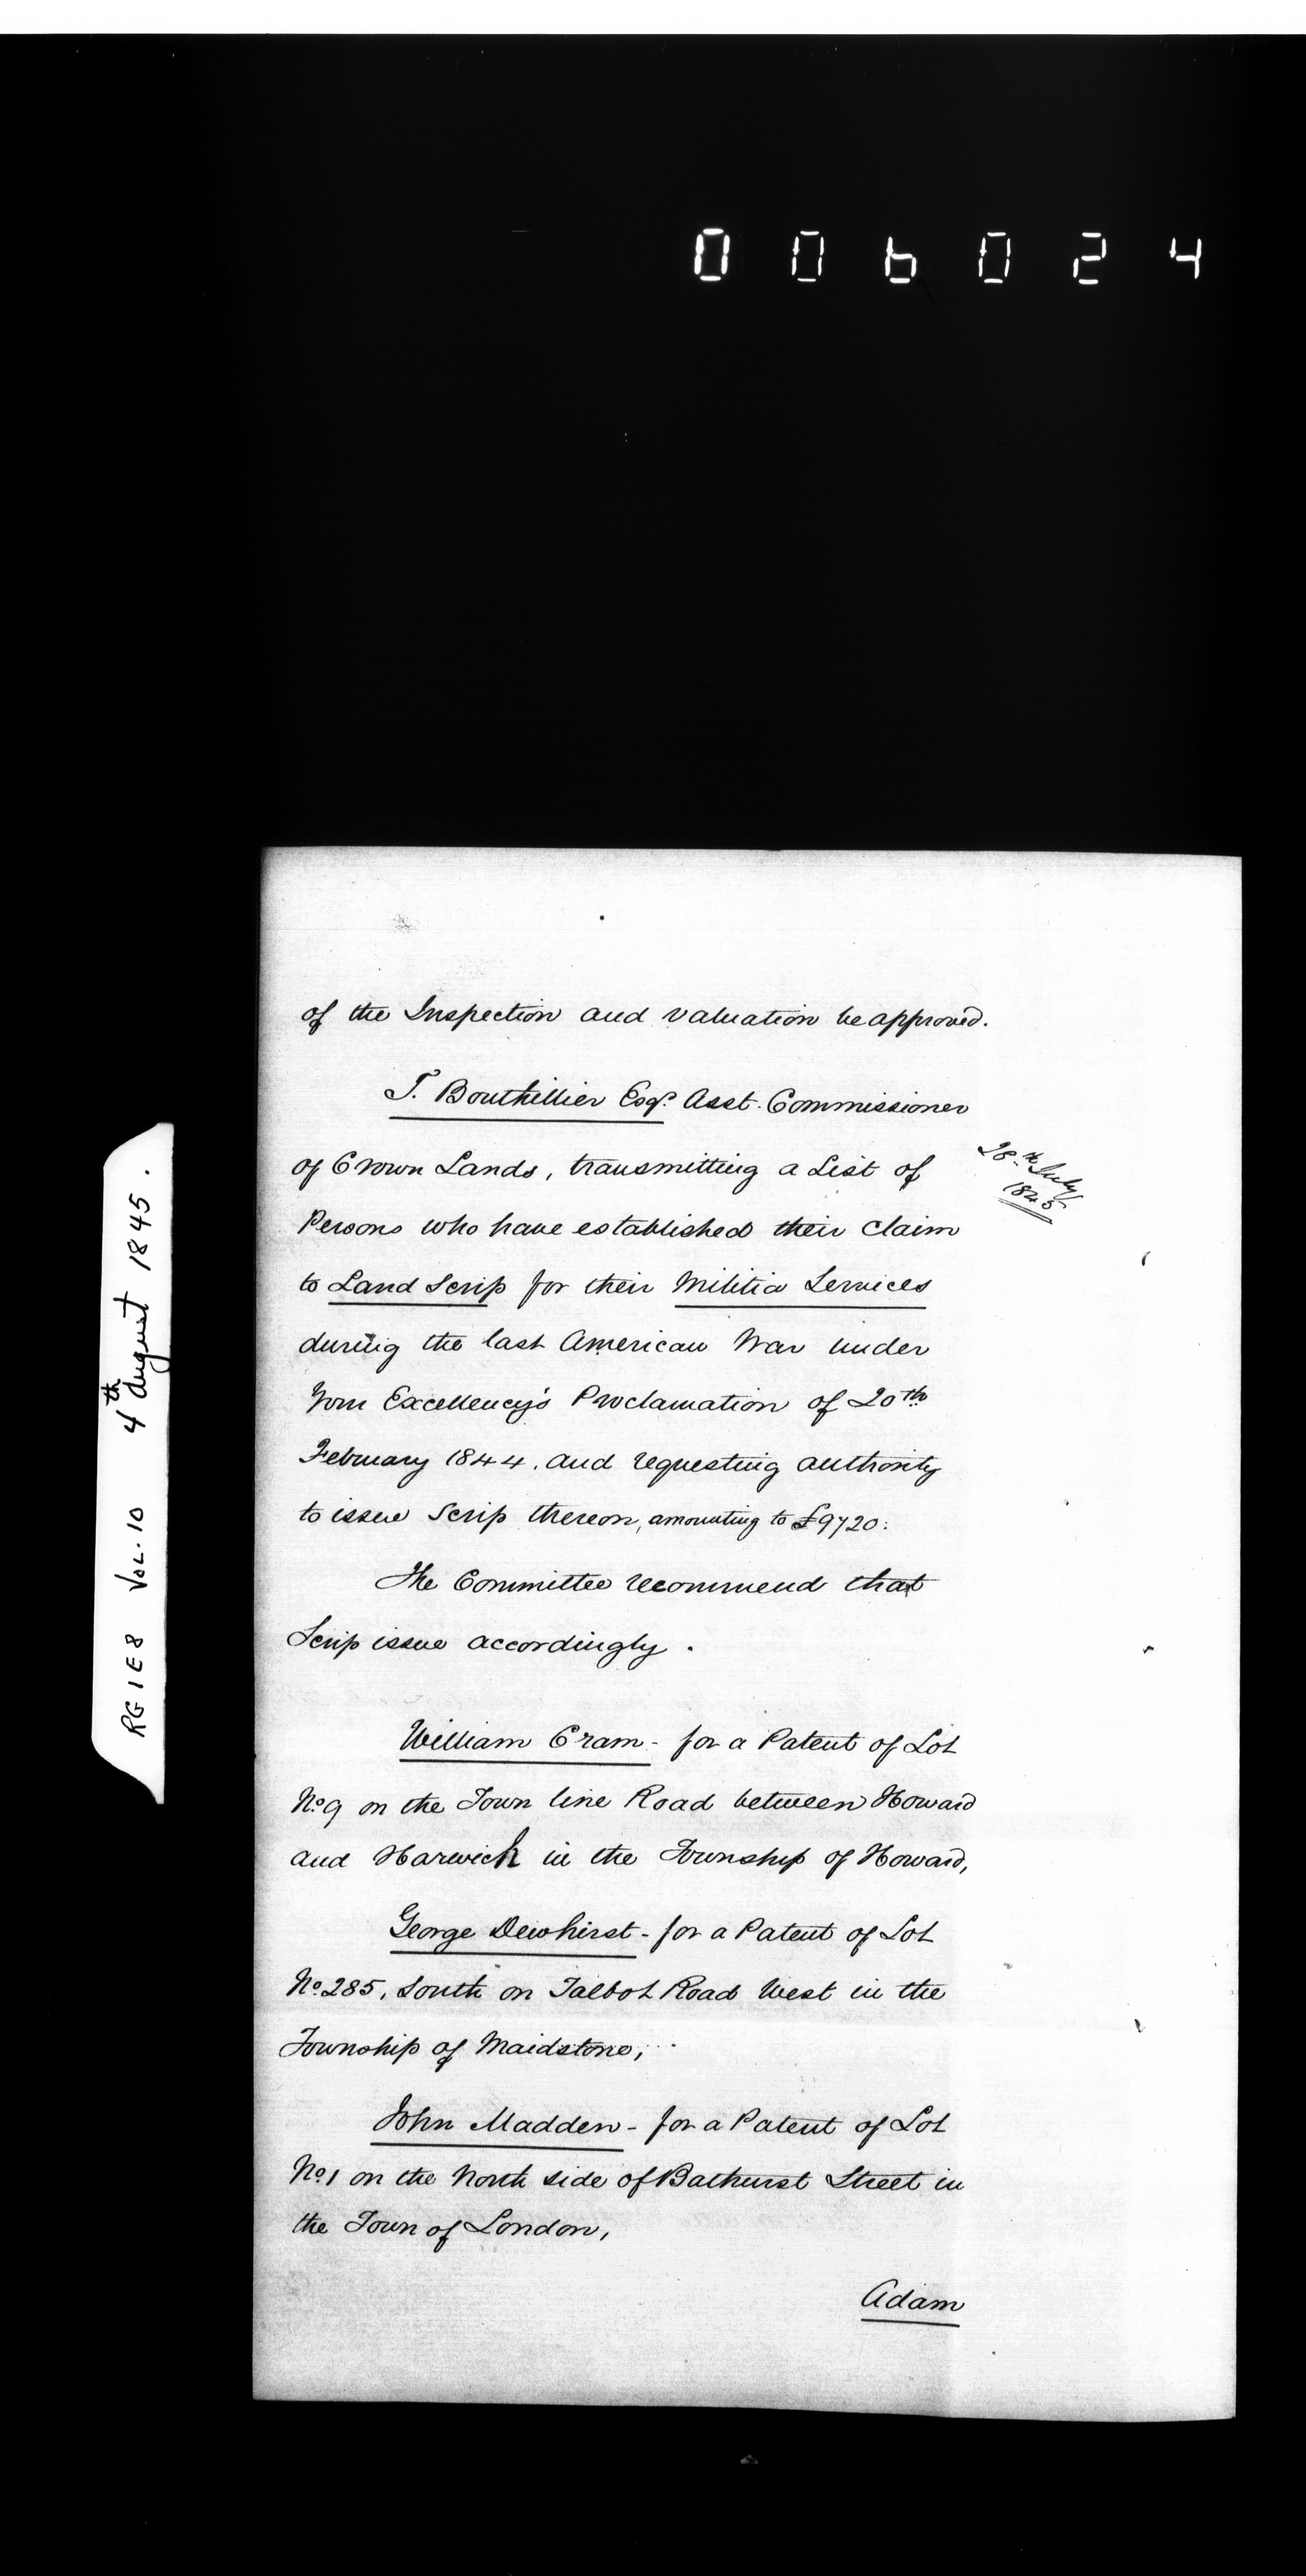 006024
of the Inspection and valuation be approved.
T. Bouthillier Esqr. Asst. Commissioner
of Crown Lands, transmitting a List of
28th July
1845
Persons who have established their claim
to Land Scrip for their Militia Services
during the last American War under
Your Excellency's Proclamation of 20th
February 1844. and requesting authority
to issue Scrip thereon, amounting to £9720:
The Committee recommend that
Scrip issue accordingly.
William Cram - for a Patent of Lot
No. 9 on the Town line Road between Howard
and Harwich in the Township of Howard,
George Dewhirst - for a Patent of Lot
No. 285, South on Talbot Road West in the
Township of Maidstone,
John Madden - for a Patent of Lot
No. 1 on the North side of Bathurst Street in
the Town of London,
Adam
RG 1 E 8 VOL. 10 4th August 1845.